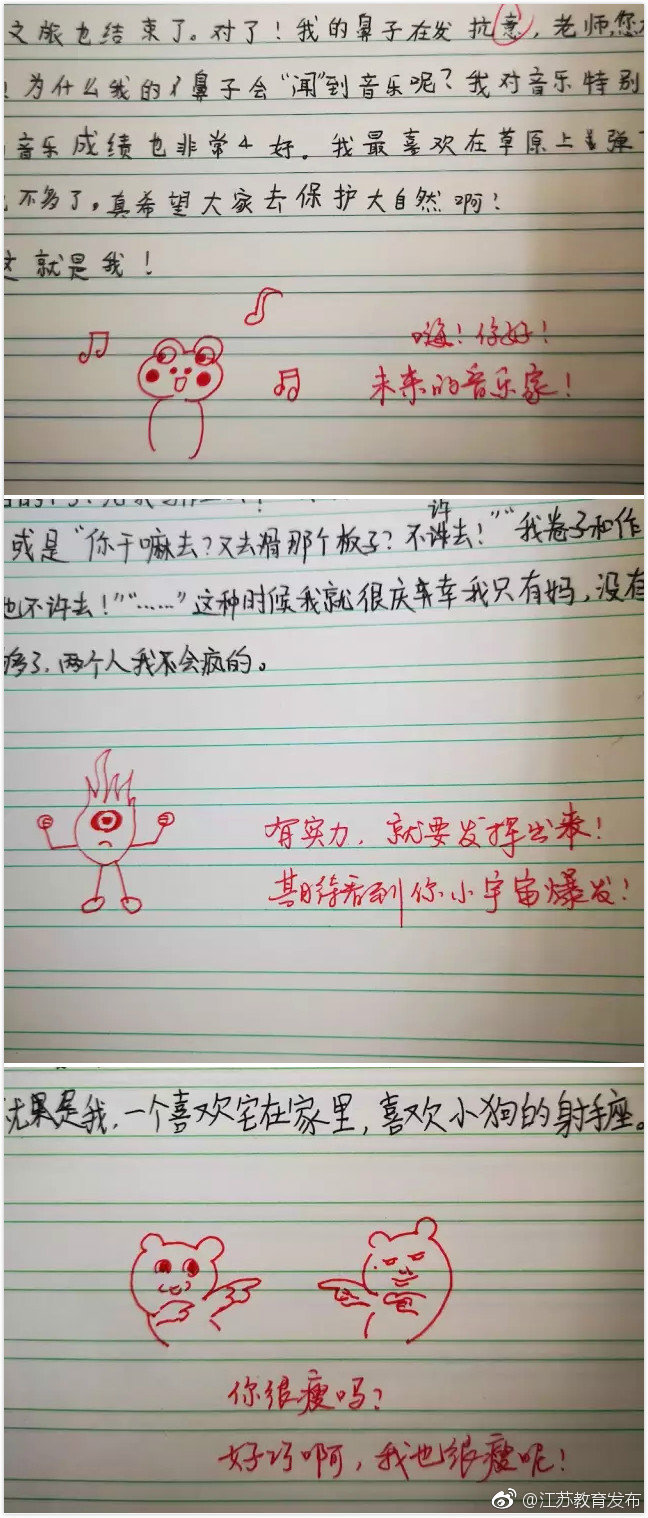 文旅也结束了。对了！我的鼻子在发抗意，老师，您
为什么我的鼻子会“闻”到音乐呢？我对音乐特别
音乐成绩也非常好。我最喜欢在草原上弹
不多了。真希望大家去保护大自然啊！
这就是我！
嗨！你好！
未来的音乐家！
许
或是“你干嘛去？又去滑那个板子？不许去！”“我卷子和作
也不许去！”“……”这种时候我就很庆幸我只有妈，没有
够了，两个人我不会疯的。
有实力，就要发挥出来！
期待看到你小宇宙爆发！
果是我，一个喜欢宅在家里，喜欢小狗的射手座。
你很瘦吗？
好巧啊，我也很瘦呢！
@江苏教育发布